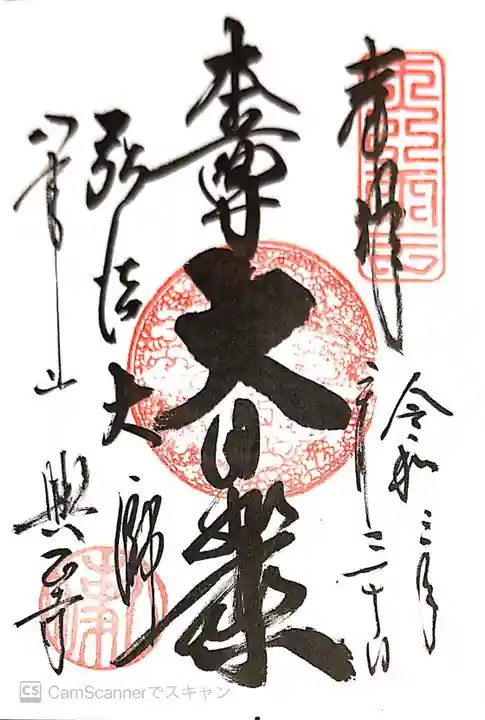 奉拝
令和三年
本尊
大日如来
弘法大師
八事山
興正寺
CS CamScannerでスキャン